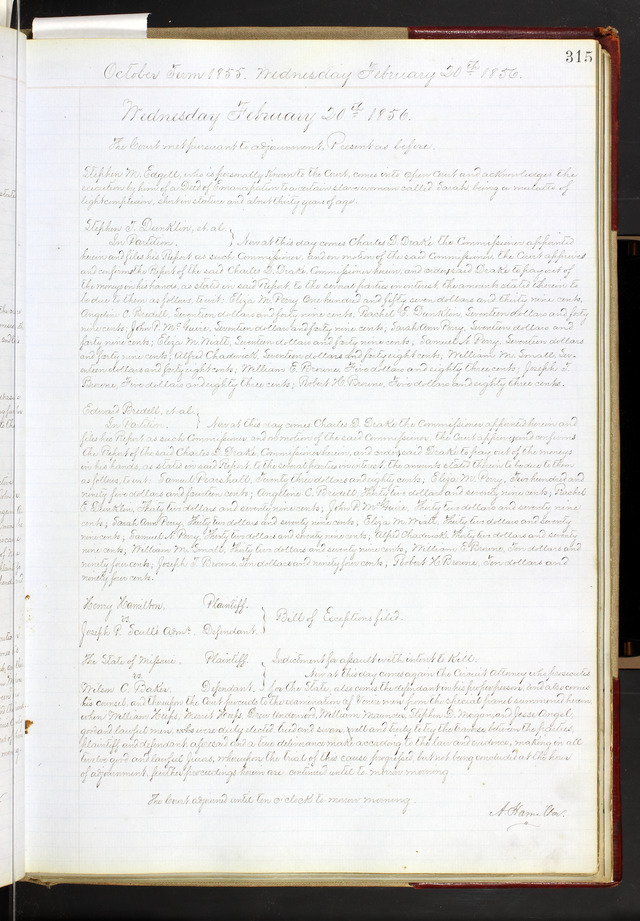 315
October Term 1855. Wednesday February 20th 1856.
Wednesday February 20th 1856.
The Court met pursuant to adjournment, Present as before.
Stephen M. Edgell, who is personally known to the Court, comes into open Court and acknowledges the
execution by him of a Deed of Emancipation to a certain slave woman called Sarah, being a mulatto of
light complexion, short in stature and about thirty years of age.
Stephen T. Dunklin, et. al.
In Partition. } Now at this day comes Charles D. Drake the Commissioner appointed
herein and files his Report as such Commissioner, and on motion of the said Commissioner the Court approves
and confirms the Report of the said Charles D. Drake, Commissioner herein, and orders said Drake to pay out of
the moneys in his hands, as stated in said Report to the several parties in interest the amounts stated therein to
be due to them as follows, to wit: Eliza M. Perry One hundred and fifty seven dollars and thirty nine cents,
Angeline C. Bredell, Seventeen dollars and forty nine cents, Rachel E. Dunklin, Seventeen dollars and forty
nine cents; John P. McGuire, Seventeen dollars and forty nine cents; Sarah Ann Perry, Seventeen dollars and
forty nine cents; Eliza M. Watt, Seventeen dollars and forty nine cents; Samuel N. Perry, Seventeen dollars
and forty nine cents; Alfred Chadwick, Seventeen dollars and forty eight cents; William M. Small, Sev-
enteen dollars and forty eight cents; William E. Benene, Five dollars and eighty three cents; Joseph T.
Benene, Five dollars and eighty three cents; Robert H. Benene, Five dollars and eighty three cents.
Edward Bredell, et. al.
In Partition. } Now at this day comes Charles D. Drake the Commissioner appointed herein and
files his Report as such Commissioner, and on motion of the said Commissioner the Court approves and confirms
the Report of the said Charles D. Drake, Commissioner herein, and orders said Drake to pay out of the moneys
in his hands, as stated in said Report, to the several parties in interest, the amounts stated therein to be due to them
as follows, to wit: Samuel Pearshall, Seventy three dollars and eighty cents; Eliza M. Perry, Two hundred and
ninety five dollars and fourteen cents; Angeline C. Bredell, Thirty two dollars and seventy nine cents; Rachel
E. Dunklin, Thirty two dollars and seventy nine cents; John P. McGuire, Thirty two dollars and seventy nine
cents; Sarah Ann Perry, Thirty two dollars and seventy nine cents; Eliza M. Watt, Thirty two dollars and seventy
nine cents; Samuel N. Perry, Thirty two dollars and seventy nine cents; Alfred Chadwick, Thirty two dollars and seventy
nine cents; William M. Small, Thirty two dollars and seventy nine cents; William E. Benene, Ten dollars and
ninety four cents; Joseph T. Benene Ten dollars and ninety four cents; Robert H. Benene, Ten dollars and
ninety four cents.
Henry Hamilton. Plaintiff.
vs } Bill of Exceptions filed.
Joseph P. Scull's Admr. Defendant.
The State of Missouri. Plaintiff. Indictment for assault with intent to Kill.
vs. } Now at this day comes again the Circuit Attorney who prosecutes
Wilson C. Baker. Defendant. for the State, also comes the defendant in his proper person, and also comes
his counsel, and thereupon the Court proceeds to the examination of men from the special panel summoned herein
when William Heaps, Drew Underwood, William Maxwell, Stephen D. Morgan, and Jesse Angel,
good and lawful men, who were duly elected tried and sworn well and truly to try the traverse between the parties,
Plaintiff and defendant aforesaid and a true deliverance make according to the law and evidence, making in all
twelve good and lawful Jurors, whereupon the trial of this cause progressed, but not being concluded at the hour
of adjournment, further proceedings herein are continued until to morrow morning.
The Court adjourned until ten o'clock to morrow morning.
A. Hamilton.